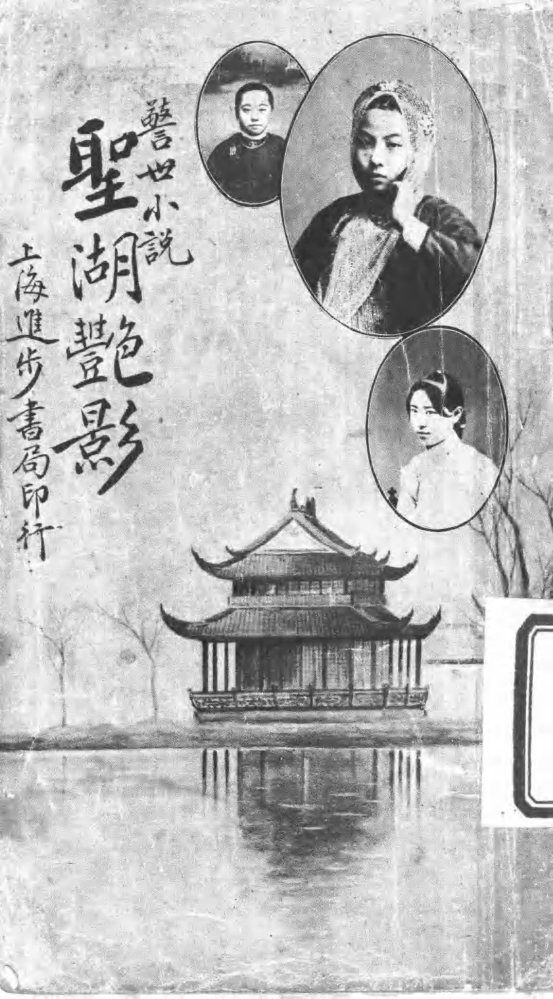 警世小說
聖湖艷影
上海進步書局印行